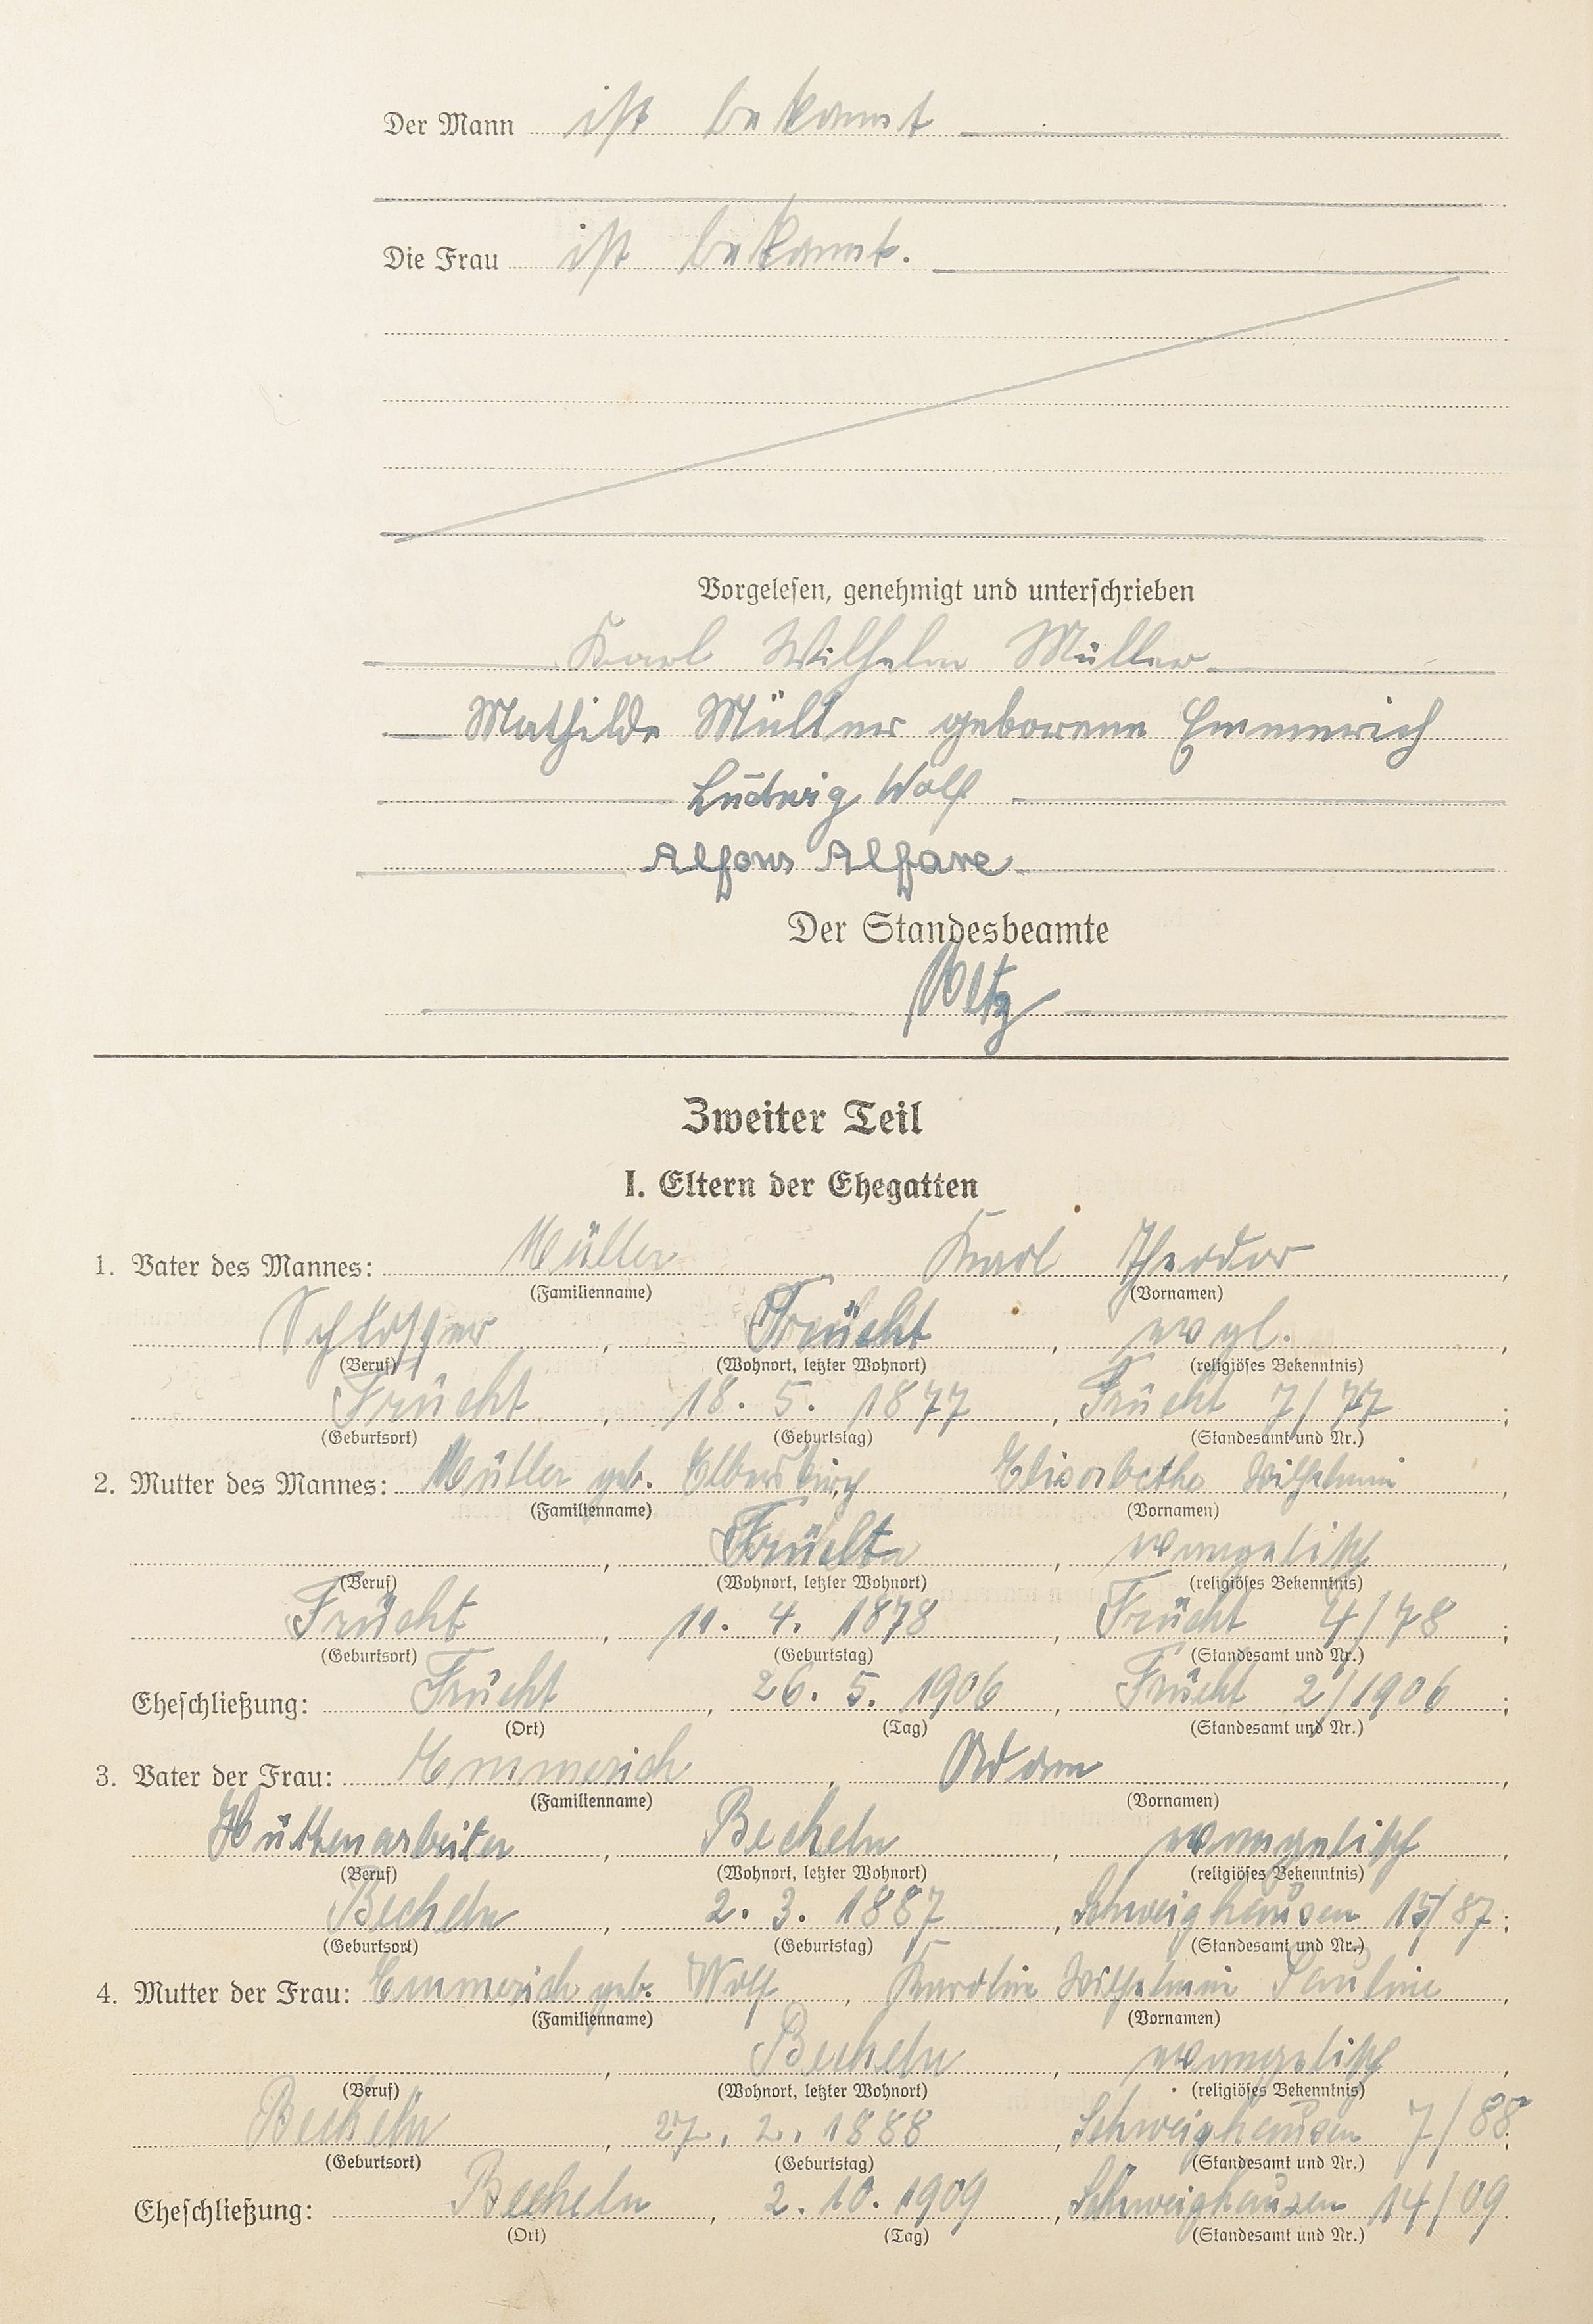 Der Mann ist bekannt
Die Frau ist bekannt.
Vorgelesen, genehmigt und unterschrieben
Karl Wilhelm Müller
Mathilde Müller geborene Emmerich
Ludwig Wolf
Alfons
Der Standesbeamte
Zweiter Teil
I. Eltern der Ehegatten
1. Vater des Mannes: Müller Karl Theodor,
(Familienname) (Vornamen)
Schlosser, Frücht, evgl.,
(Beruf) (Wohnort, letzter Wohnort) (religiöses Bekenntnis)
Frücht, 18. 5. 1877, Frücht 7/77;
(Geburtsort) (Geburtstag) (Standesamt und Nr.)
2. Mutter des Mannes: Müller geb. Elbers Elisabethe Wilhelmine,
(Familienname) (Vornamen)
, Frücht, evangelisch,
(Beruf) (Wohnort, letzter Wohnort) (religiöses Bekenntnis)
Frücht, 11. 4. 1878, Frücht 4/78;
(Geburtsort) (Geburtstag) (Standesamt und Nr.)
Eheschließung: Frücht, 26. 5. 1906, Frücht 2/1906;
(Ort) (Tag) (Standesamt und Nr.)
3. Vater der Frau: Emmerich, Adam,
(Familienname) (Vornamen)
Hüttenarbeiter, Becheln, evangelisch,
(Beruf) (Wohnort, letzter Wohnort) (religiöses Bekenntnis)
Becheln, 2. 3. 1887, Schweighausen 15/87;
(Geburtsort) (Geburtstag) (Standesamt und Nr.)
4. Mutter der Frau: Emmerich geb. Wolf, Karolin Wilhelmine Pauline,
(Familienname) (Vornamen)
, Becheln, evangelisch,
(Beruf) (Wohnort, letzter Wohnort) (religiöses Bekenntnis)
Becheln, 27. 2. 1888, Schweighausen 7/88;
(Geburtsort) (Geburtstag) (Standesamt und Nr.)
Eheschließung: Becheln, 2. 10. 1909, Schweighausen 14/09.
(Ort) (Tag) (Standesamt und Nr.)